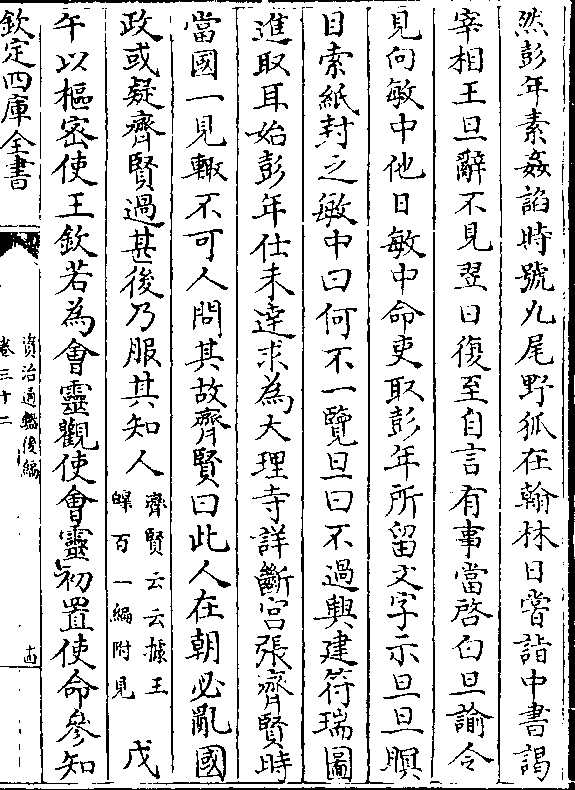 然彭年素姦謟時號九尾野狐在翰林日嘗詣中書謁
宰相王旦辭不見翌日復至自言有事當啓白旦諭令
見向敏中他日敏中命吏取彭年所留文字示旦旦瞑
目索紙封之敏中曰何不一覽旦曰不過興建符瑞圖
進取耳始彭年仕未達求為大理寺詳斷官張齊賢時
當國一見輙不可人問其故齊賢曰此人在朝必亂國
政或疑齊賢過甚後乃服其知人
齊賢云云據王
皥百一編附見
戊
午以樞密使王欽若為㑹靈觀使㑹靈初置使命參知
欽定四庫全書
資治通鑑後編
卷三十二
十四